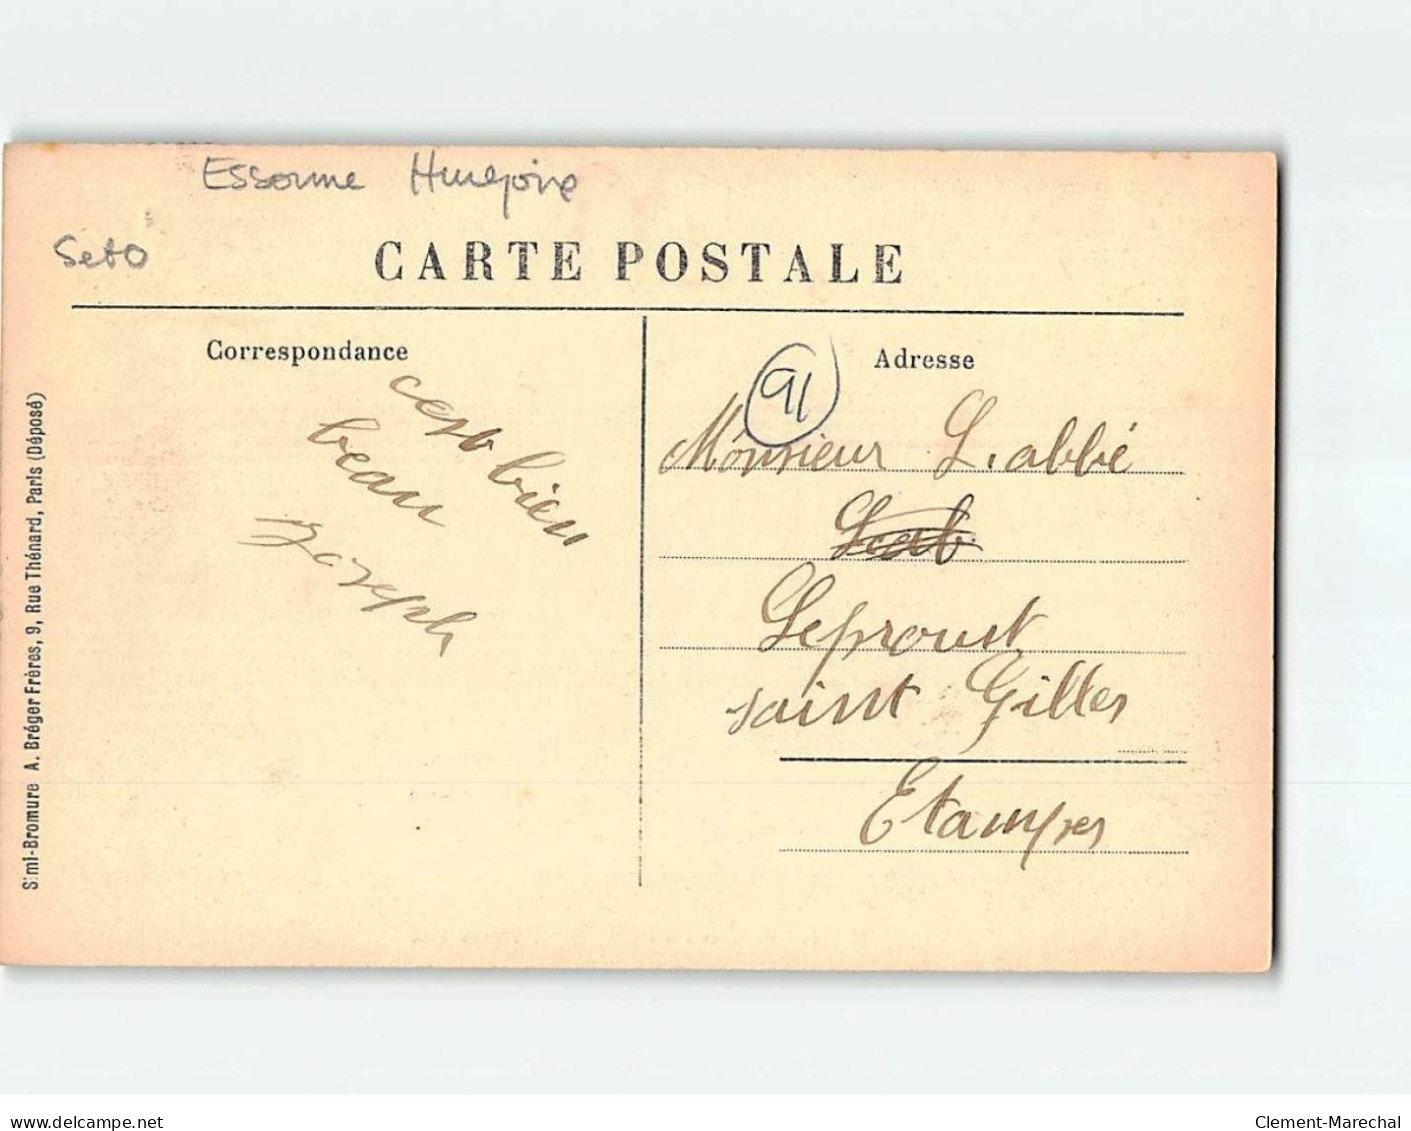 Essonne
Seto
CARTE POSTALE
Correspondance
Adresse
91
c'est bien
beau
joseph
Monsieur L. abbé
Leproust
saint Gilles
Etampes
Simi-Bromure A. Bréger Frères, 9, Rue Thénard, Paris (Déposé)
www.delcampe.net
Clement-Marechal